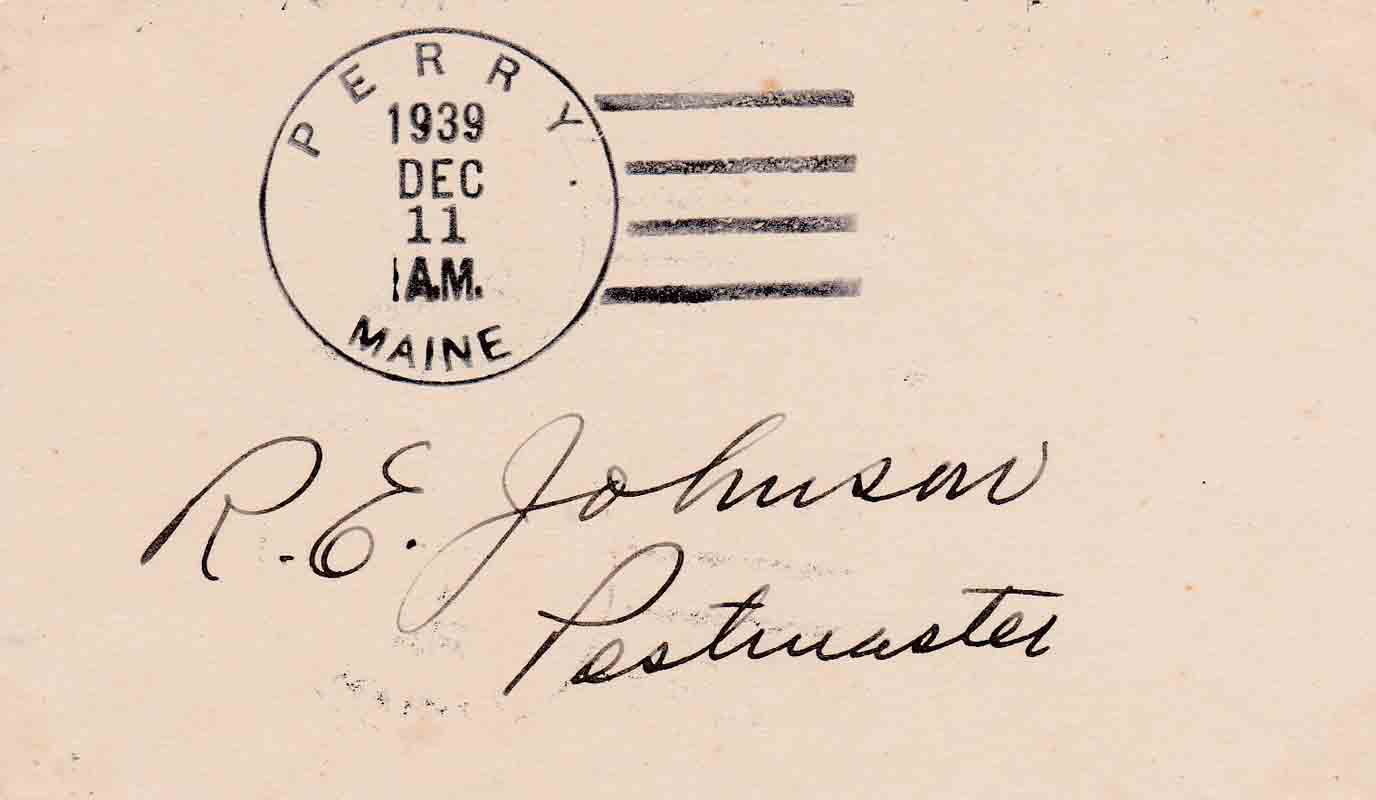 PERRY
1939
DEC
11
A.M.
MAINE
R. E. Johnson
Postmaster